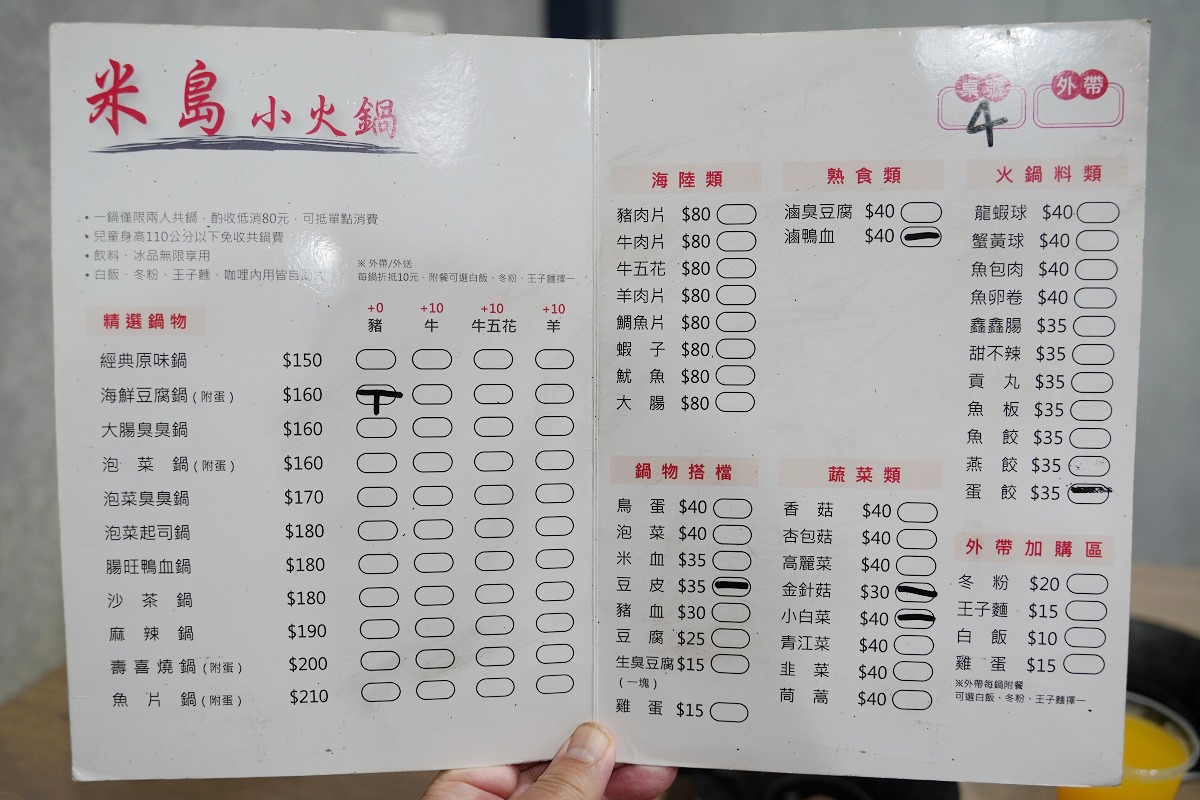 米島小火鍋
•一鍋僅限兩人共鍋，酌收低消80元，可抵單點消費
•兒童身高110公分以下免收共鍋費
•飲料、冰品無限享用
•白飯、冬粉、王子麵、咖哩內用皆自助式
※外帶/外送
每鍋折抵10元，附餐可選白飯、冬粉、王子麵擇一
精選鍋物
+0 +10 +10 +10
豬 牛 牛五花 羊
經典原味鍋 $150
海鮮豆腐鍋(附蛋) $160
大腸臭臭鍋 $160
泡菜鍋(附蛋) $160
泡菜臭臭鍋 $170
泡菜起司鍋 $180
腸旺鴨血鍋 $180
沙茶鍋 $180
麻辣鍋 $190
壽喜燒鍋(附蛋) $200
魚片鍋(附蛋) $210
桌號 外帶
4
海陸類
豬肉片 $80
牛肉片 $80
牛五花 $80
羊肉片 $80
鯛魚片 $80
蝦子 $80
魷魚 $80
大腸 $80
熟食類
滷臭豆腐 $40
滷鴨血 $40
火鍋料類
龍蝦球 $40
蟹黃球 $40
魚包肉 $40
魚卵卷 $40
鑫鑫腸 $35
甜不辣 $35
貢丸 $35
魚板 $35
魚餃 $35
燕餃 $35
蛋餃 $35
鍋物搭檔
鳥蛋 $40
泡菜 $40
米血 $35
豆皮 $35
豬血 $30
豆腐 $25
生臭豆腐 $15
(一塊)
雞蛋 $15
蔬菜類
香菇 $40
杏包菇 $40
高麗菜 $40
金針菇 $30
小白菜 $40
青江菜 $40
韭菜 $40
茼蒿 $40
外帶加購區
冬粉 $20
王子麵 $15
白飯 $10
雞蛋 $15
※外帶每鍋附餐
可選白飯、冬粉、王子麵擇一